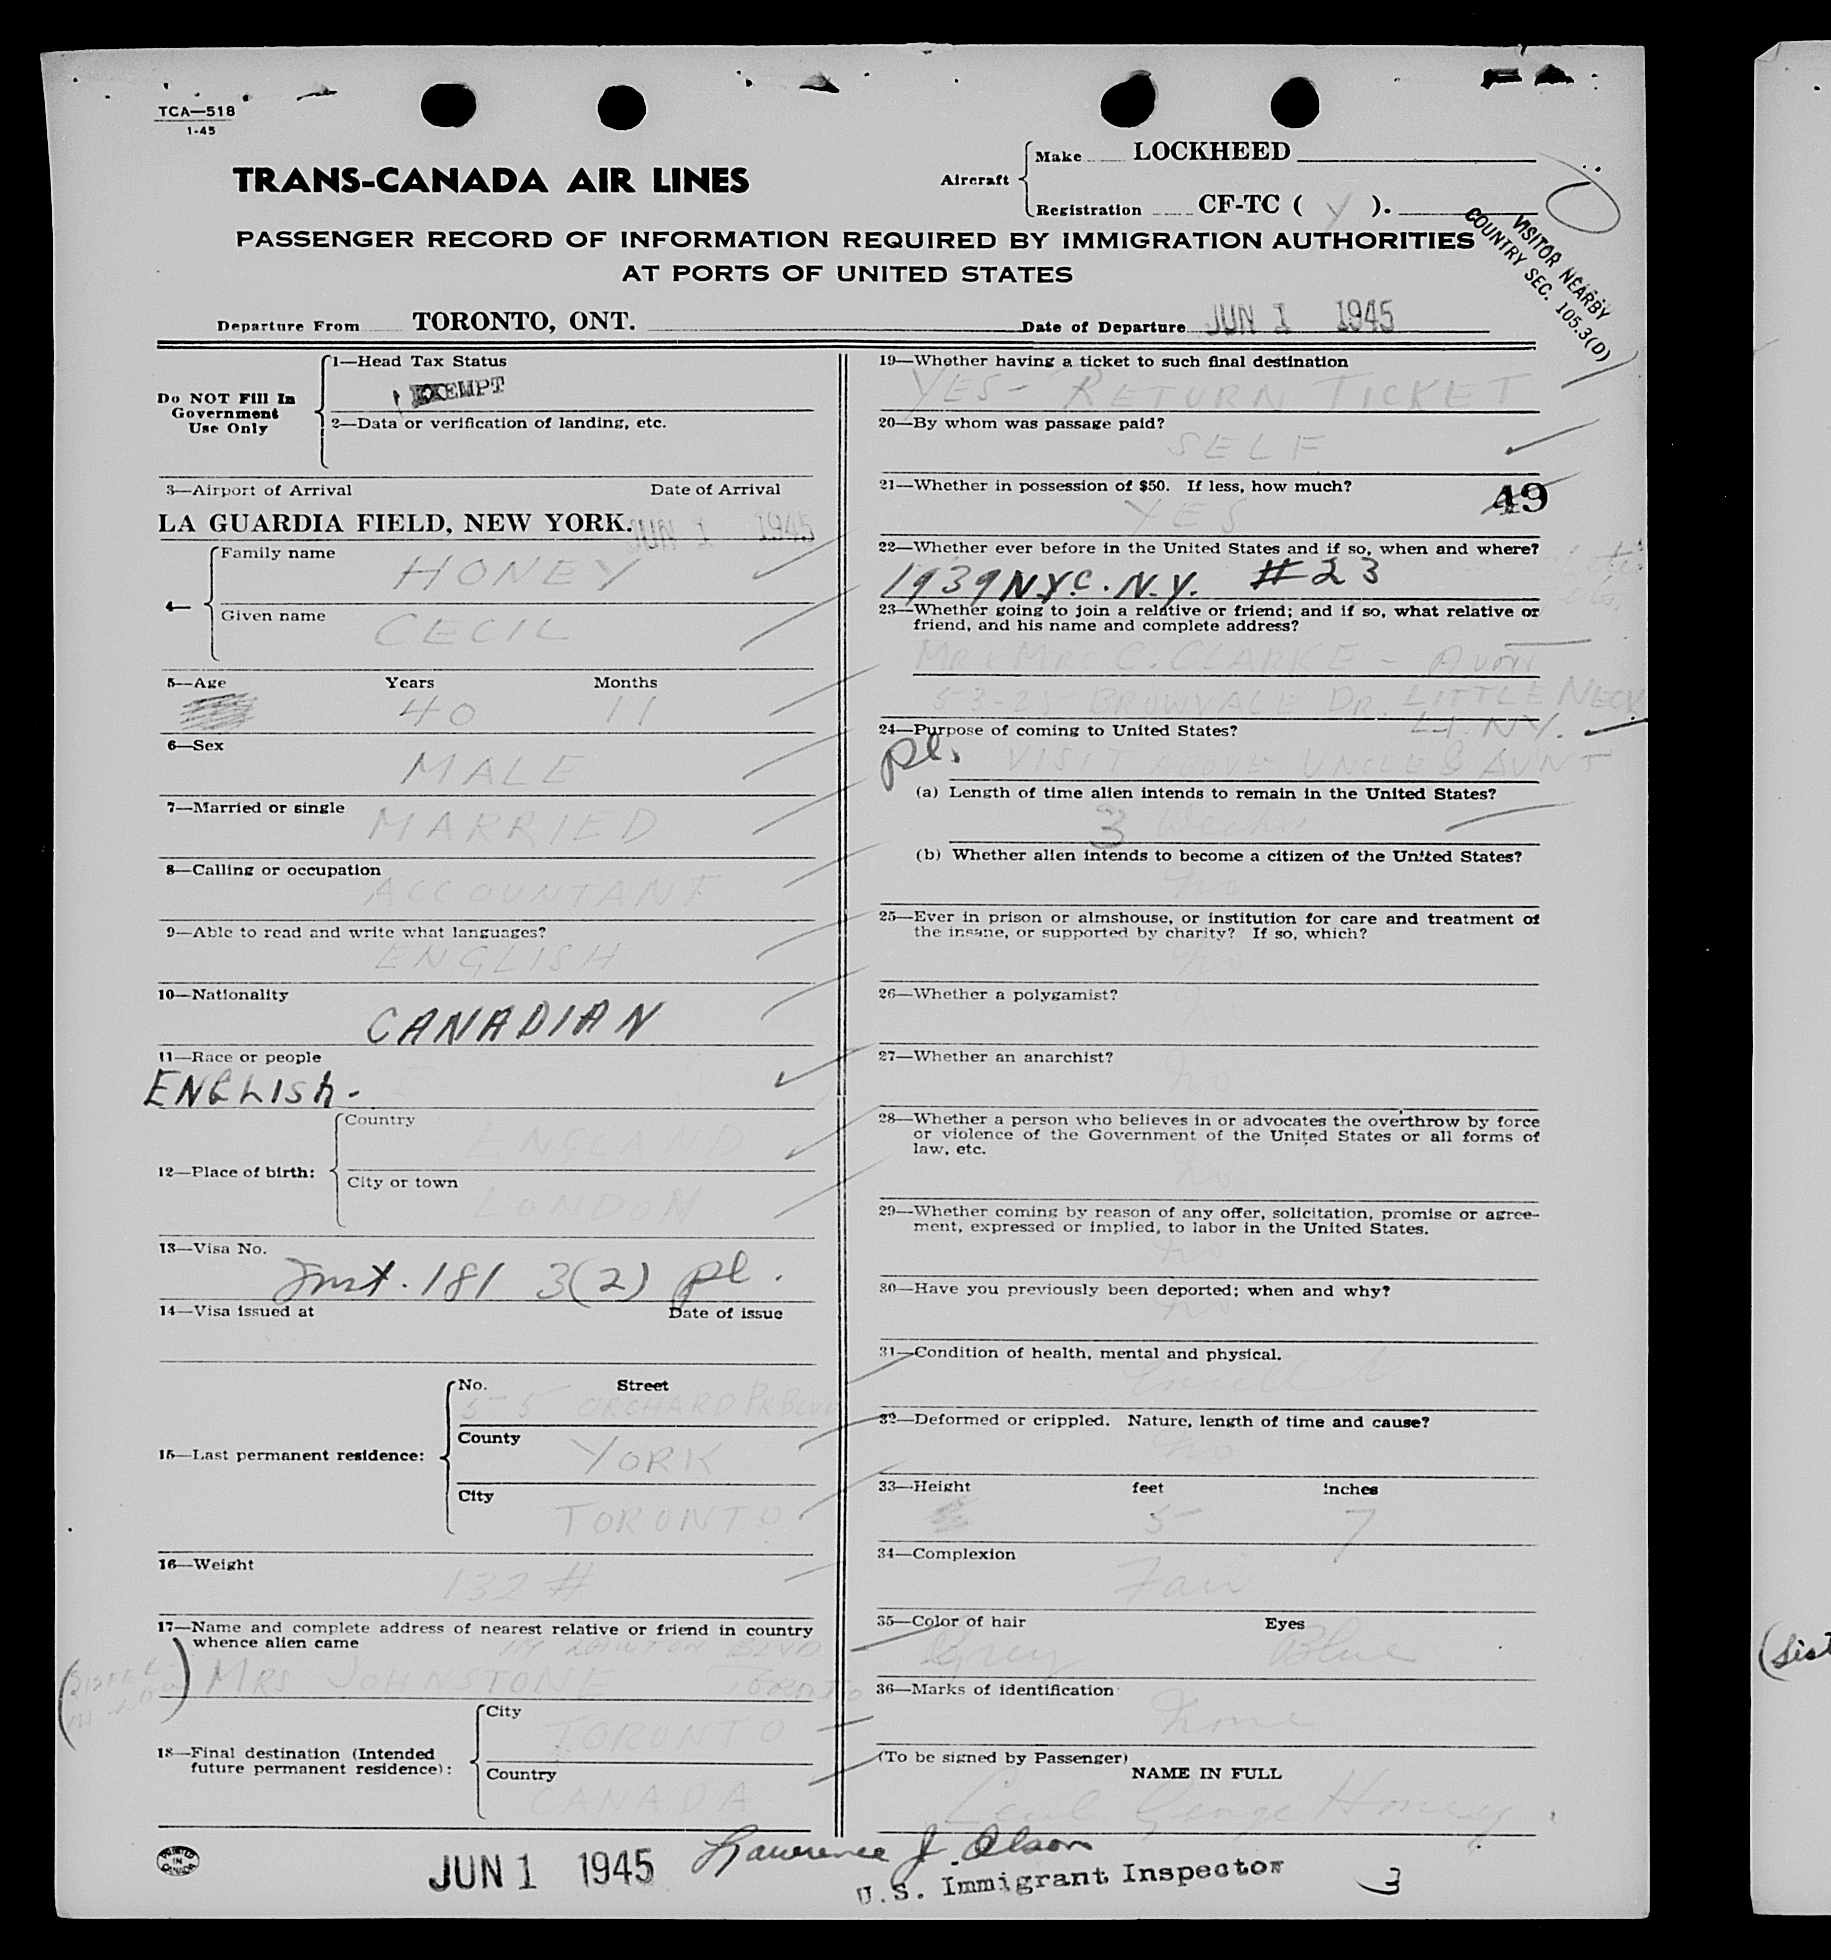 TCA—518
1-45
TRANS-CANADA AIR LINES
Aircraft
Make LOCKHEED
Registration CF-TC ( Y ).
PASSENGER RECORD OF INFORMATION REQUIRED BY IMMIGRATION AUTHORITIES
AT PORTS OF UNITED STATES
VISITOR NEARBY
COUNTRY SEC. 105.3(D)
Departure From TORONTO, ONT.
Date of Departure JUN 1 1945
Do NOT Fill In
Government
Use Only
1—Head Tax Status
EXEMPT
2—Data or verification of landing, etc.
3—Airport of Arrival Date of Arrival
LA GUARDIA FIELD, NEW YORK. JUN 1 1945
4—
Family name
HONEY
Given name
CECIL
5—Age Years Months
40 11
6—Sex
MALE
7—Married or single
MARRIED
8—Calling or occupation
ACCOUNTANT
9—Able to read and write what languages?
ENGLISH
10—Nationality
CANADIAN
11—Race or people
ENGLISh.
12—Place of birth:
Country
ENGLAND
City or town
LONDON
13—Visa No.
Inst. 181 3(2) pl.
14—Visa issued at Date of issue
15—Last permanent residence:
No. Street
55 ORCHARD PK BLVD
County
YORK
City
TORONTO
16—Weight
132 #
17—Name and complete address of nearest relative or friend in country
whence alien came
BLVD
MRS JOHNSTONE TORONTO
18—Final destination (Intended
future permanent residence):
City
TORONTO
Country
CANADA
19—Whether having a ticket to such final destination
YES - RETURN TICKET
20—By whom was passage paid?
SELF
21—Whether in possession of $50. If less, how much?
49
YES
22—Whether ever before in the United States and if so, when and where?
1939 N.Y.C. N.Y. #23
23—Whether going to join a relative or friend; and if so, what relative or
friend, and his name and complete address?
MR & MRS C. CLARKE - AUNT
53-25 BROWVALE DR. LITTLE NECK
L.I. N.Y.
24—Purpose of coming to United States?
pl. VISIT ABOVE UNCLE & AUNT
(a) Length of time alien intends to remain in the United States?
3 Weeks
(b) Whether alien intends to become a citizen of the United States?
no
25—Ever in prison or almshouse, or institution for care and treatment of
the insane, or supported by charity? If so, which?
no
26—Whether a polygamist?
27—Whether an anarchist?
no
28—Whether a person who believes in or advocates the overthrow by force
or violence of the Government of the United States or all forms of
law, etc.
no
29—Whether coming by reason of any offer, solicitation, promise or agree-
ment, expressed or implied, to labor in the United States.
no
30—Have you previously been deported; when and why?
no
31—Condition of health, mental and physical.
32—Deformed or crippled. Nature, length of time and cause?
no
33—Height feet inches
5 7
34—Complexion
Fair
35—Color of hair Eyes
Grey Blue
36—Marks of identification
none
(To be signed by Passenger)
NAME IN FULL
Cecil George Honey
PRINTED IN CANADA
JUN 1 1945
Lawrence J. Olson
U.S. Immigrant Inspector
3
(Sist